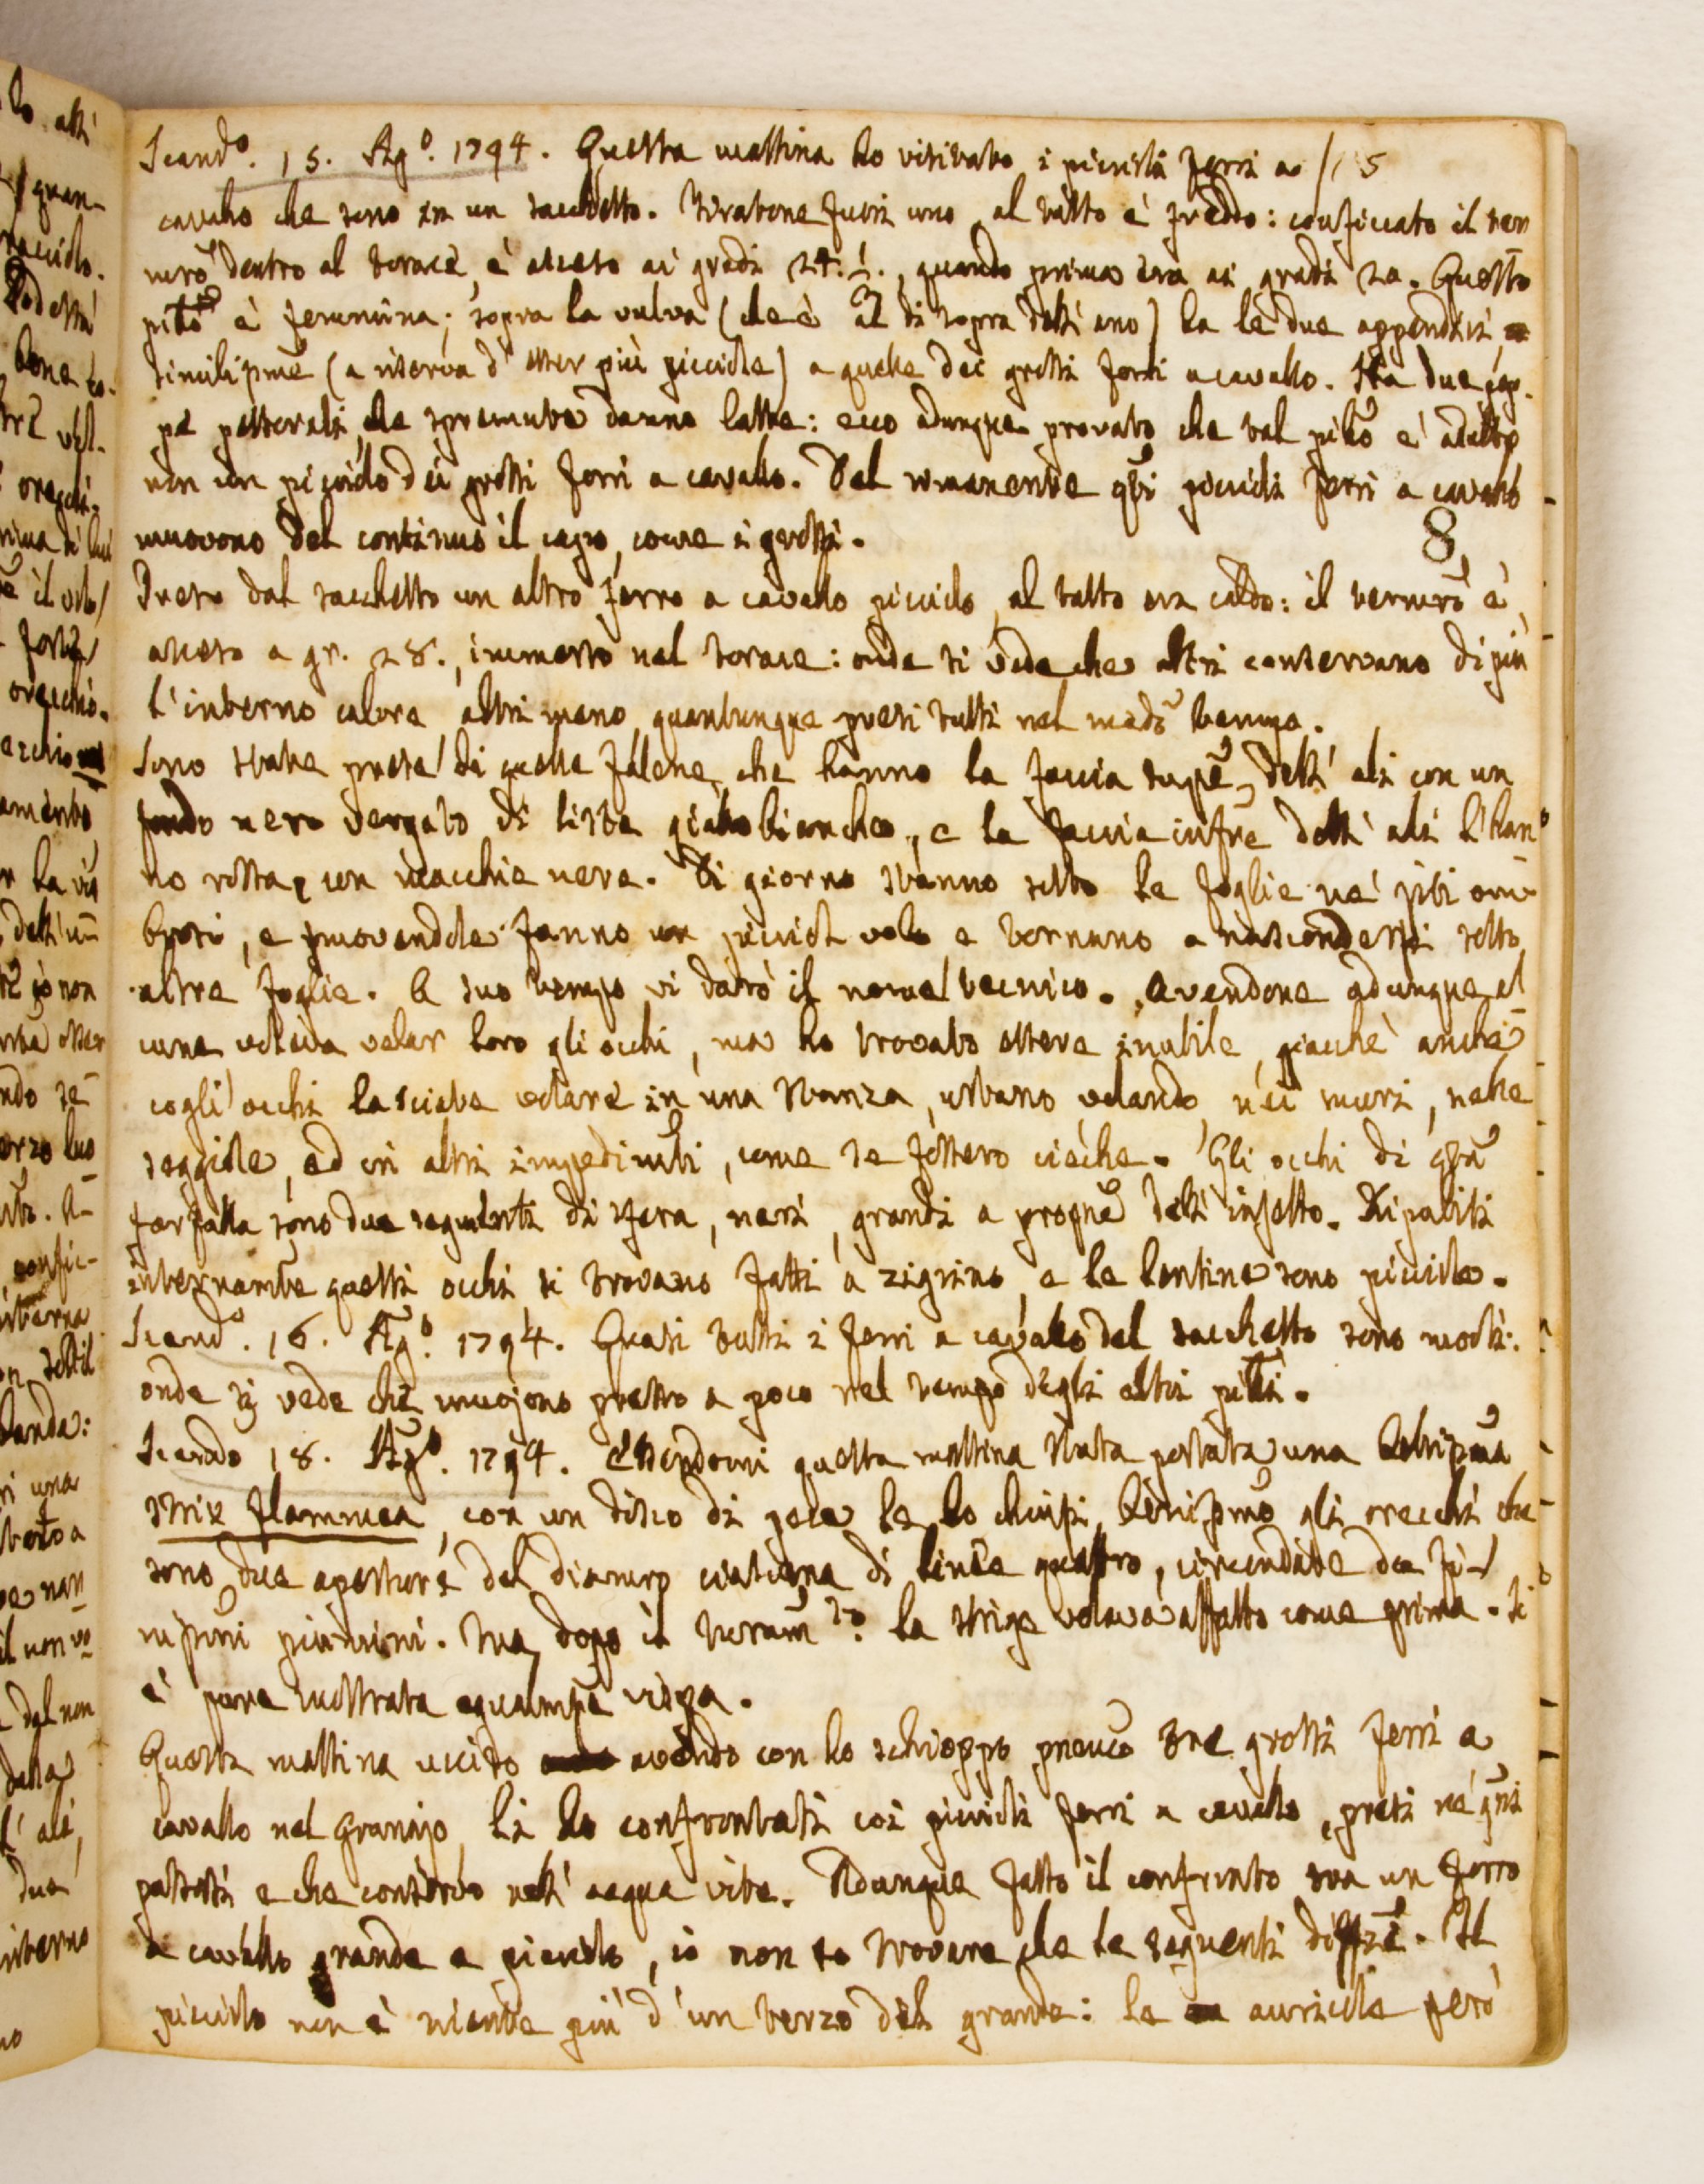 Scand.º 15. Ag.º 1794. Questa mattina ho visitato i piccioli ferri a 115
cavallo che sono in un sacchetto. Tiratone fuori uno, al tatto è freddo: conficcato il ter
m̃ro dentro al torace, è asceso ai gradi 24.½., quando prima era ai gradi 20. Questo
pipto è femmina; sopra la vulva (che è al di sopra dell' ano) ha le due appendici
similipme (a riserva d' esser più picciole) a quelle dei grossi ferri a cavallo. Ha due pop.
pe pettorali, che spremute danno latte: ecco adunque provato che tal pipto è adulto, e
non un picciolo dei grossi ferri a cavallo. Del rimanente qsti piccioli ferri a cavallo
muovono del continuo il capo, come i grossi.
8
Preso dal sacchetto un altro ferro a cavallo picciolo, al tatto era caldo: il termrõ è
asceso a gr. 28., immerso nel torace: onde si vede che altri conservano di più
l'interno calore, altri meno, quantunque presi tutti nel medõ tempo.
Sono state prese di quelle falene, che hanno la faccia supẽ dell' ali con un
fondo nero vergato di liste giallo bianche, e la faccia infre dell' ali l'han
no rossa, con macchie nere. Di giorno stanno sotto le foglie ne' siti om
brosi, e smovendole fanno un picciol volo e tornano a nascondersi sotto
altre foglie. A suo tempo vi darò il nome tecnico. Avendone adunque al
cune voleva velar loro gli occhi, ma ho trovato essere inutile, giacchè anche
cogli occhi lasciate volare in una stanza, urtano volando nei muri, nelle
seggiole, ed in altri impedimti, come se fossero cieche. Gli occhi di qsta
farfalla sono due segmenti di sfera, neri, grandi a propne dell' insetto. Ripuliti
internamte questi occhi si trovano fatti a zigrino, e le lentine sono picciole.
Scand.º 16. Ag.º 1794. Quasi tutti i ferri a cavallo del sacchetto sono morti:
onde si vede che muojono presso a poco nel tempo degli altri pipti.
Scando 18. Ag.º 1794. Essendomi questa mattina stata portata una bellipma
strix flammea, con un disco di pelle le ho chiusi benipmo gli orecchi che
sono due aperture del diametro ciascuna di linee quattro, circondate da fi-
nipmi piumini. Ma dopo il turamto. la strige volava affatto come prima. Si
è pure mostrata egualmte vispa.
Questa mattina ucciso avendo con lo schioppo pneuco tre grossi ferri a
cavallo nel granajo, li ho confrontati coi piccioli ferri a cavallo, presi ne' gni
passati e che conservo nell' acqua vite. Adunque fatto il confronto tra un ferro
a cavallo grande e picciolo, io non so trovare che le seguenti diffze. Il
picciolo non è niente più d' un terzo del grande: le auricole però